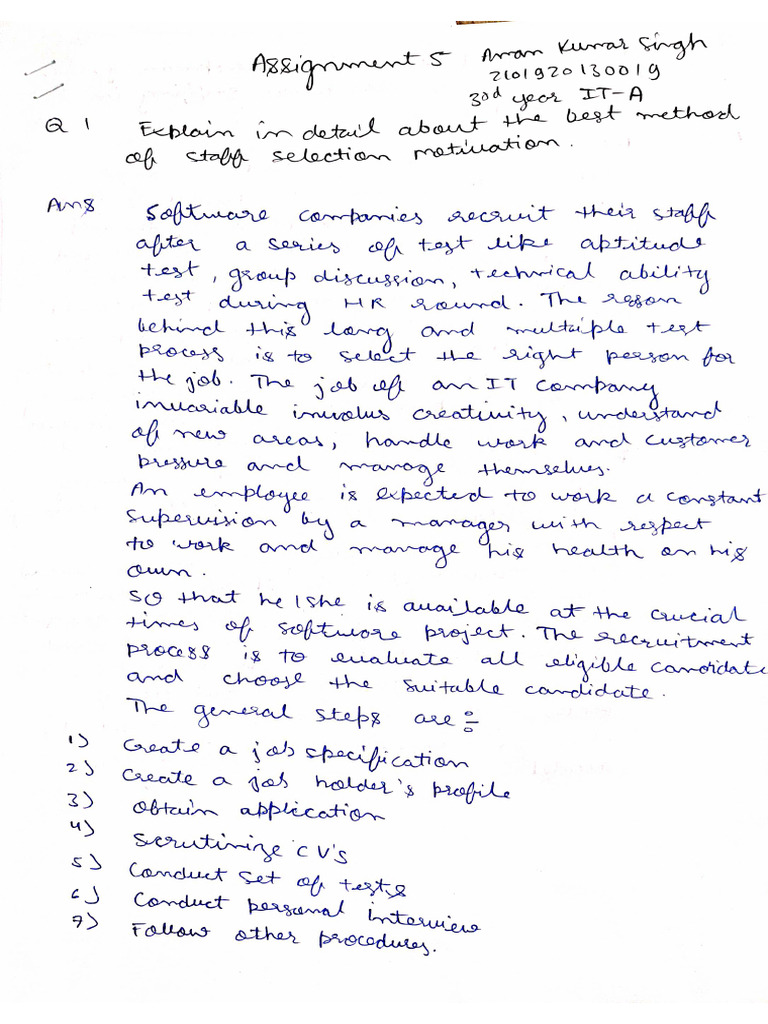 Assignment 5 Aman Kumar Singh
2101920130019
3rd year IT-A
Q 1 Explain in detail about the best method
of staff selection motivation.
Ans Software companies recruit their staff
after a series of test like aptitude
test, group discussion, technical ability
test during HR round. The reson
behind this long and multiple test
process is to select the right person for
the job. The job of an IT company
invariable involus creativity, understand
of new areas, handle work and customer
pressure and manage themselves.
An employee is expected to work a constant
supervision by a manager with respect
to work and manage his health on his
own.
So that he/she is available at the crucial
times of software project. The recruitment
process is to evaluate all eligible candidate
and choose the suitable candidate.
The general steps are :-
1) Create a job specification
2) Create a job holder's profile
3) Obtain application
4) Scrutinize CV's
5) Conduct set of tests
6) Conduct personal interview
7) Follow other procedures.